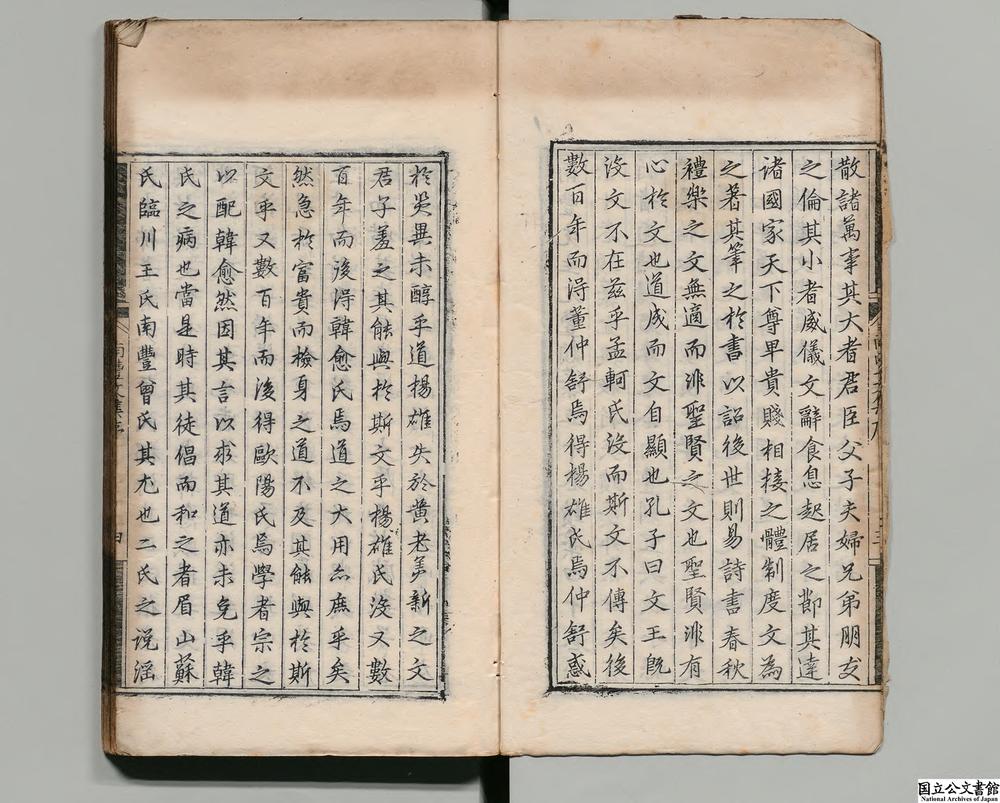 散諸萬事其大者君臣父子夫婦兄弟朋友
之倫其小者威儀文辭食息起居之節其達
諸國家天下尊卑貴賤相接之體制度文為
之著其筆之於書以詔後世則易詩書春秋
禮樂之文無適而非聖賢之文也聖賢非有
心於文也道成而文自顯也孔子曰文王既
沒文不在茲乎孟軻氏沒而斯文不傳矣後
數百年而得董仲舒焉得楊雄氏焉仲舒惑
於災異未醇乎道楊雄失於黃老美新之文
君子羞之其能與於斯文乎楊雄氏沒又數
百年而後得韓愈氏焉道之大用亦庶乎矣
然急於富貴而檢身之道不及其能與於斯
文乎又數百年而後得歐陽氏焉學者宗之
以配韓愈然因其言以求其道亦未免乎韓
氏之病也當是時其徒倡而和之者眉山蘇
氏臨川王氏南豐曾氏其尤也二氏之說滛
四
国立公文書館
National Archives of Japan